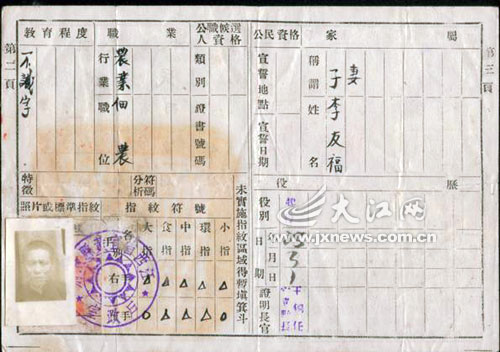 第二頁
教育程度
不識字
職業
行業
農業
職位
佃農
公職候選人資格
類別
證書號碼
公民資格
宣誓地點
宣誓日期
家屬
稱謂
妻
子
姓名
李友福
第三頁
特徵
符碼
分析
照片或標準指紋
指紋符號
各指
大指
食指
中指
環指
小指
右手
△ △ △ △
O △ △ △ O
未實施指紋區域得暫填箕斗
役歷
役別
日期
年月日
證明長官
大江网
www.jxnews.com.cn